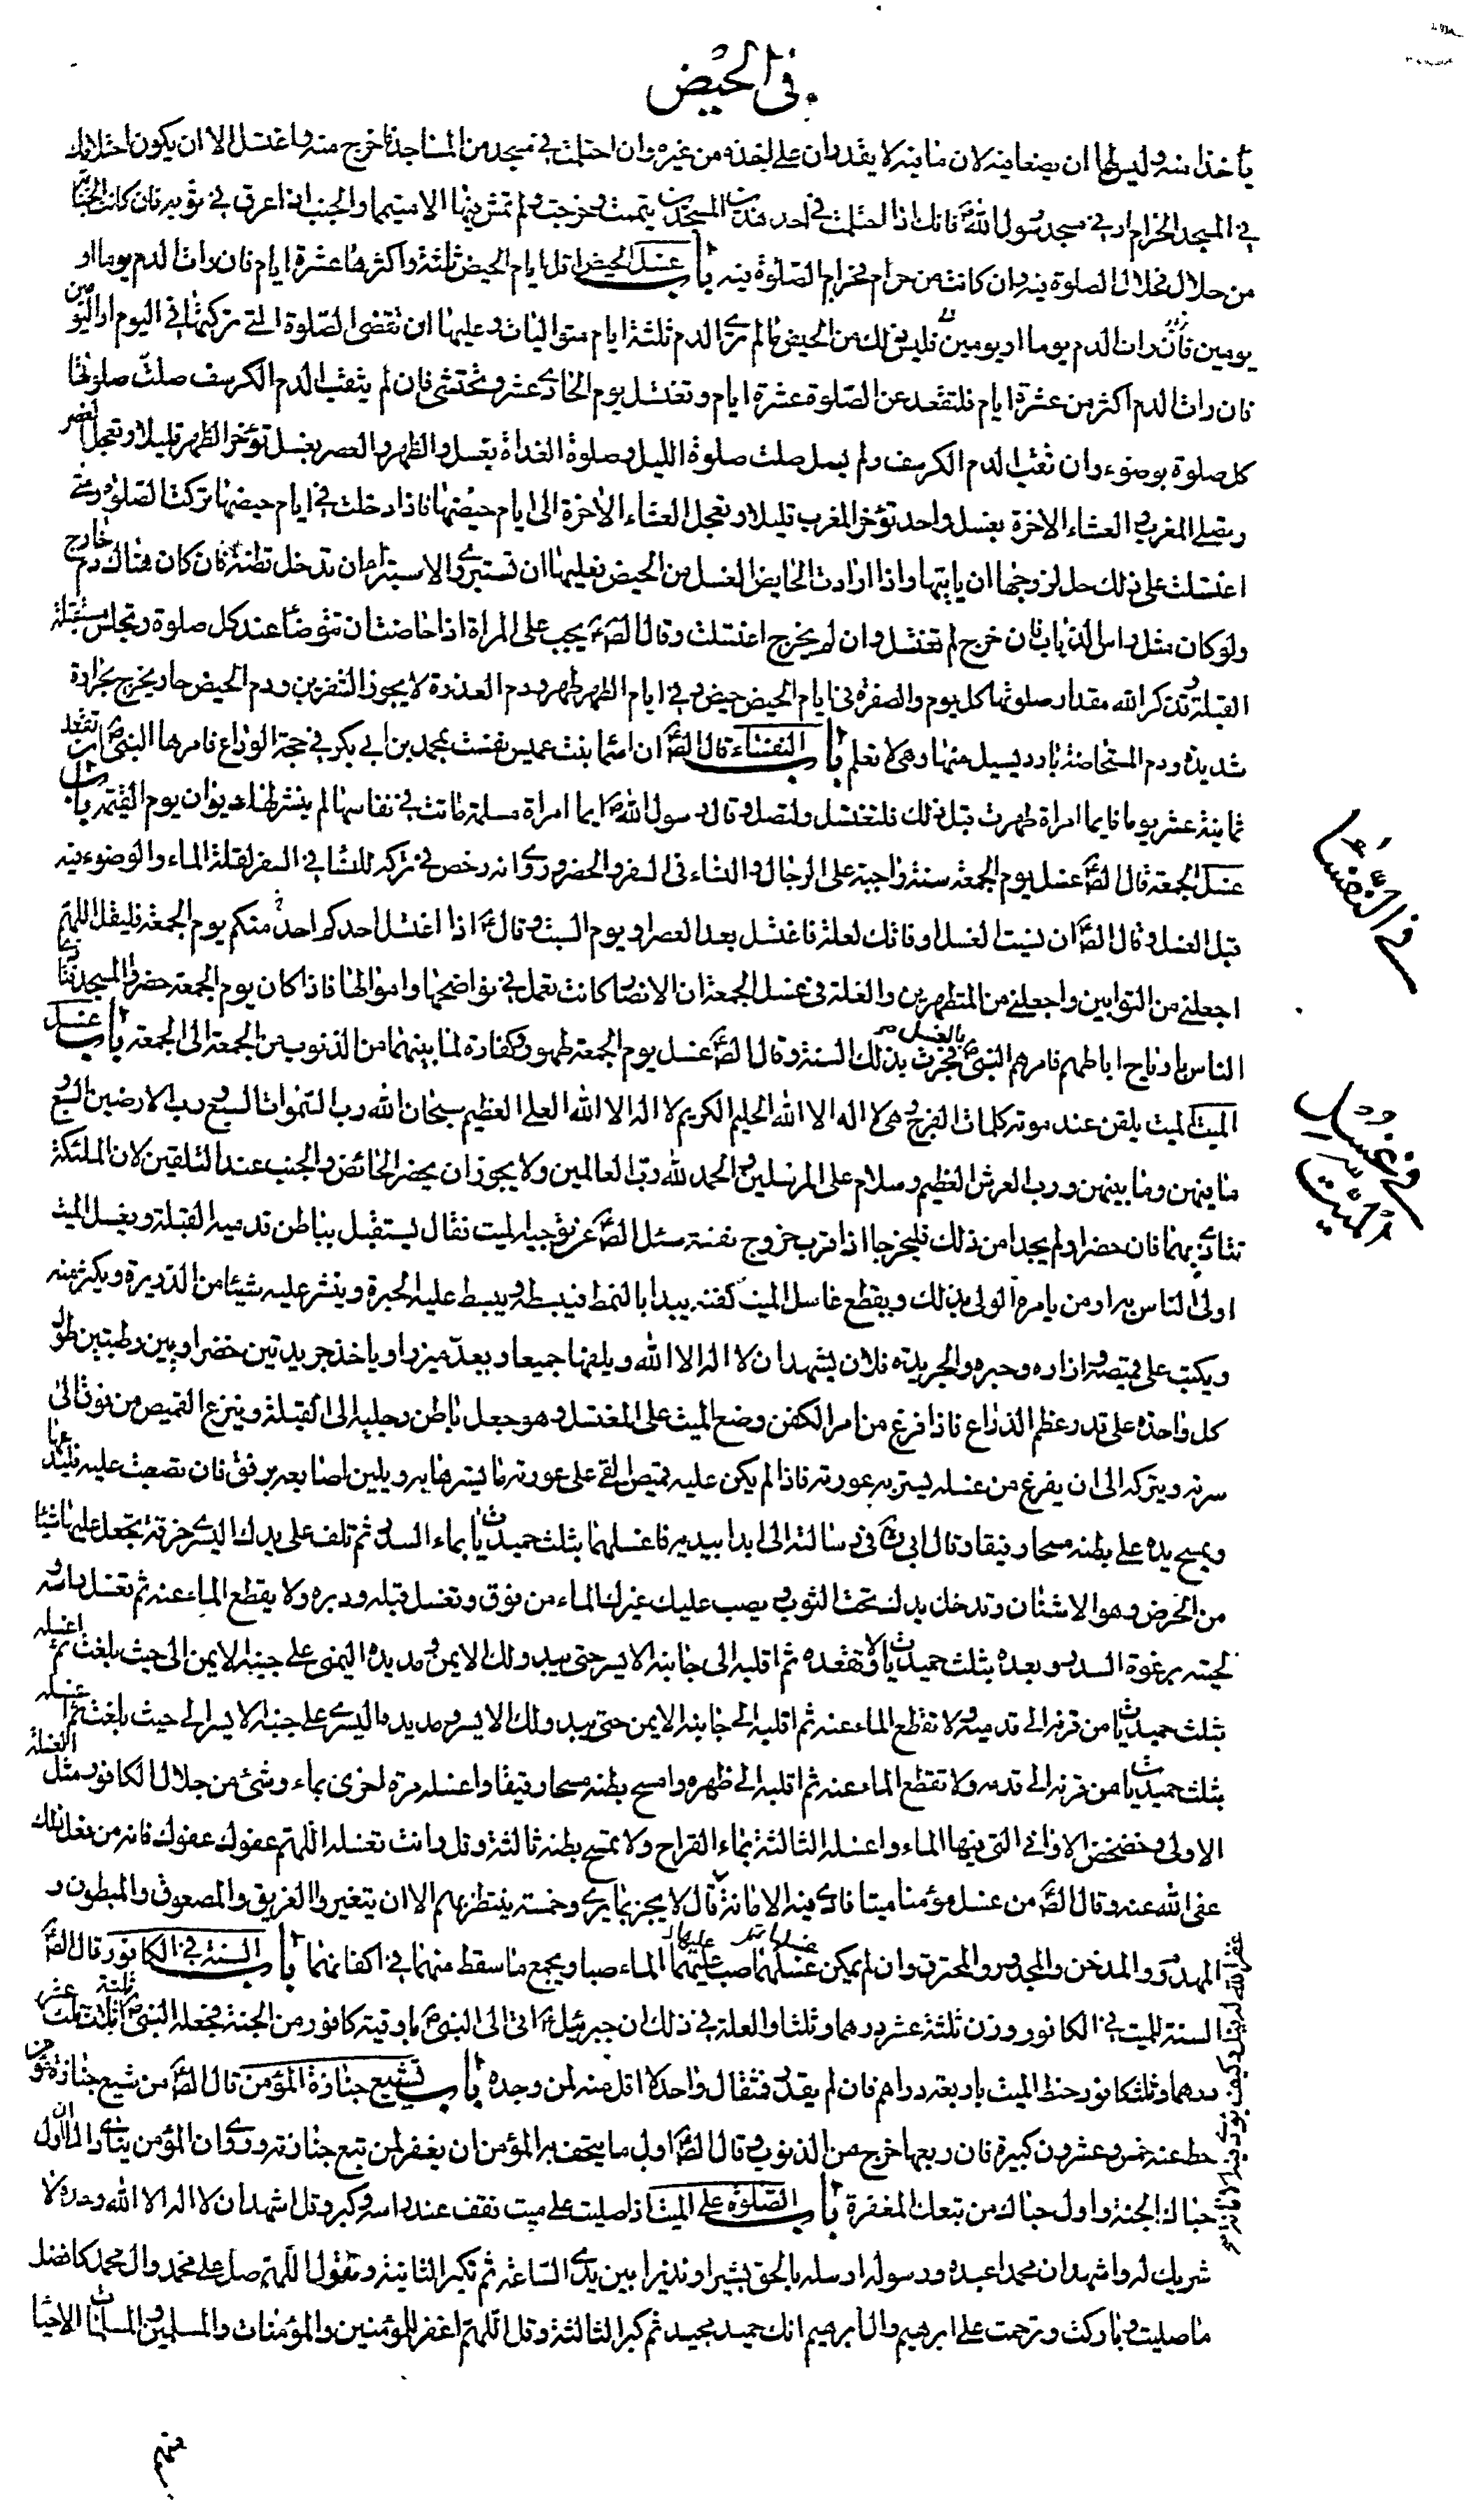 في الحيض
ياخذا منه وليس لهما ان يضعا فيه لان ما فيه لا يقدران على اخذه من غيره وان احتلمت في مسجد من المساجد فاخرج منه واغتسل الا ان يكون احتلامك
في المسجد الحرام او في مسجد رسول الله ص فانك اذا احتلمت في احد هذين المسجدين تيممت وخرجت ولم تمش فيهما الا متيمما والجنب اذا عرق في ثوبه فان كانت الجنابة
من حلال فحلال الصلوة فيه وان كانت من حرام فحرام الصلوة فيه باب غسل الحيض اقل ايام الحيض ثلثة واكثرها عشرة ايام فان رات الدم يوما او
يومين فان رات الدم يوما او يومين فليس ذلك من الحيض ما لم تر الدم ثلثة ايام متواليات وعليها ان تقضى الصلوة التي تركتها في اليوم او اليومين
فان رات الدم اكثر من عشرة ايام فلتقعد عن الصلوة عشرة ايام وتغتسل يوم الحادي عشر وتحتشى فان لم يثقب الدم الكرسف صلت صلوتها
كل صلوة بوضوء وان ثقب الدم الكرسف ولم يسل صلت صلوة الليل وصلوة الغداة بغسل والظهر والعصر بغسل تؤخر الظهر قليلا وتعجل العصر
وتصلي المغرب والعشاء الاخرة بغسل واحد تؤخر المغرب قليلا وتعجل العشاء الاخرة الى ايام حيضها فاذا دخلت في ايام حيضها تركت الصلوة ومتى
اغتسلت على ذلك حل لزوجها ان ياتيها واذا ارادت الحايض الغسل من الحيض فعليها ان تستبرئ والاستبراء ان تدخل قطنة فان كان هناك دم خارج
ولو كان مثل راس الذباب فان خرج لم تغتسل وان لم يخرج اغتسلت وقال الص ع يجب على المراة اذا حاضت ان تتوضأ عند كل صلوة وتجلس مستقبلة
القبلة وتذكر الله مقدار صلوتها كل يوم والصفرة في ايام الحيض حيض وفي ايام الطهر طهر ودم العذرة لا يجوز الشفرين ودم الحيض حار يخرج بحرارة
شديدة ودم المستحاضة بارد يسيل منها وهي لا تعلم باب النفساء قال الص ع ان اسما بنت عميس نفست بمحمد بن ابي بكر في حجة الوداع فامرها النبي ص ان تقعد
ثمانية عشر يوما فايما امراة طهرت قبل ذلك فلتغتسل ولتصل وقال رسول الله ص ايما امراة مسلمة ماتت في نفاسها لم ينشر لها ديوان يوم القيمة باب
غسل الجمعة قال الص ع غسل يوم الجمعة سنة واجبة على الرجال والنساء في السفر والحضر وروى انه رخص في تركه للنسا في السفر لقلة الماء والوضوء فيه
قبل الغسل وقال الص ع ان نسيت الغسل او فاتك لعلة فاغتسل بعد العصر او يوم السبت وقال ع اذا اغتسل احدكم احد منكم يوم الجمعة فليقل اللهم
اجعلني من التوابين واجعلني من المتطهرين والعلة في غسل الجمعة ان الانصار كانت تعمل في نواضحها واموالها فاذا كان يوم الجمعة حضروا المسجد فتأذى
الناس بارياح اباطهم فامرهم النبي ص بالغسل فجرت بذلك السنة وقال الص ع غسل يوم الجمعة طهور وكفارة لما بينهما من الذنوب من الجمعة الى الجمعة باب غسل
الميت الميت يلقن عند موته كلمات الفرج وهي لا اله الا الله الحليم الكريم لا اله الا الله العلي العظيم سبحان الله رب السموات السبع ورب الارضين السبع
وما فيهن وما بينهن ورب العرش العظيم وسلام على المرسلين والحمد لله رب العالمين ولا يجوز ان يحضر الحائض والجنب عند التلقين لان الملئكة
تتاذى بهما فان حضرا ولم يجدا من ذلك فليخرجا اذا قرب خروج نفسه سئل الص ع عن توجيه الميت فقال يستقبل بباطن قدميه القبلة ويغسل الميت
اولى الناس به او من يامره الولي بذلك ويقطع غاسل الميت كفنه يبدا بالنمط فيبسطه ويبسط عليه الحبرة وينثر عليه شيئا من الذريرة ويكثر منه
ويكتب على قميصه وازاره وحبره والجريدة فلان يشهد ان لا اله الا الله ويلفها جميعا ويعد ميزرا وياخذ جريدتين خضراوين رطبتين طول
كل واحدة على قدر عظم الذراع فاذا فرغ من امر الكفن وضع الميت على المغتسل وهو جعل باطن رجليه الى القبلة وينزع القميص من فوق الى
سرته ويتركه الى ان يفرغ من غسله يستر به عورته فاذا لم يكن عليه قميص القى على عورته ما يسترها به ويلين اصابعه برفق فان تصعبت عليه فليدعها
ويمسح يده على بطنه مسحا رفيقا وقال ابي في رسالته الي ابدا بيديه فاغسلهما بثلث حميديات بماء السدر ثم تلف على يدك اليسرى خرقة تجعل عليها شيئا
من الحرض وهو الاشنان وتدخل يدك تحت الثوب ويصب عليك غيرك الماء من فوق وتغسل قبله ودبره ولا يقطع الماء عنه ثم تغسل راسه و
لحيته برغوة السدر وبعده بثلث حميديات ولا تقعده ثم اقلبه الى جانبه الايسر حتى يبدو لك الايمن ومد يده اليمنى على جنبه الايمن الى حيث بلغت ثم اغسله
بثلث حميديات من قرنه الى قدميه ولا تقطع الماء عنه ثم اقلبه الى جانبه الايمن حتى يبدو لك الايسر ومد يده اليسرى على جنبه الايسر الى حيث بلغت ثم اغسله
بثلث حميديات من قرنه الى قدمه ولا تقطع الماء عنه ثم اقلبه الى ظهره وامسح بطنه مسحا رفيقا واغسله مرة اخرى بماء وشئ من جلال الكافور مثل الغسلة
الاولى وخضخض الاواني التي فيها الماء واغسله الثالثة بماء القراح ولا تمسح بطنه ثالثة وقل وانت تغسله اللهم عفوك عفوك فانه من فعل ذلك
عفى الله عنه وقال الص ع من غسل مؤمنا ميتا فادى فيه الامانة قال لا يخبر بما يرى وخمسة ينتظر بهم الا ان يتغيروا الغريق والمصعوق والمبطون و
المهدوم والمدخن والمجدور والمحترق وان لم يمكن غسلهما صب عليهما الماء صبا ويجمع ما سقط منهما في اكفانهما باب السنة في الكافور قال الص ع
السنة للميت في الكافور وزن ثلثة عشر درهما وثلثا والعلة في ذلك ان جبرئيل ع اتى الى النبي ص باوقية كافور من الجنة فجعله النبي ص اثلاثا ثلث ثلثة عشر
درهما وثلث كافور حنط الميت باربعة دراهم فان لم يقدر فمثقال واحد لا اقل منه لمن وجده باب تشييع جنازة المؤمن قال الص ع من شيع جنازة مؤمن
حط عنه خمس وعشرون كبيرة فان ربعها خرج من الذنوب وقال الص ع اول ما يتحف به المؤمن ان يغفر لمن تبع جنازته وروى ان المؤمن ينادى الا ان اول
حباك الجنة واول حباء من تبعك المغفرة باب الصلوة على الميت اذا صليت على ميت فقف عند راسه وكبر وقل اشهد ان لا اله الا الله وحده لا
شريك له واشهد ان محمدا عبده ورسوله ارسله بالحق بشيرا ونذيرا بين يدي الساعة ثم تكبر الثانية وتقول اللهم صل على محمد وال محمد كافضل
ما صليت وباركت وترحمت على ابرهيم وال ابرهيم انك حميد مجيد ثم كبر الثالثة وقل اللهم اغفر للمؤمنين والمؤمنات والمسلمين والمسلمات الاحيا
منهم
في النفساء
في غسل
الميت